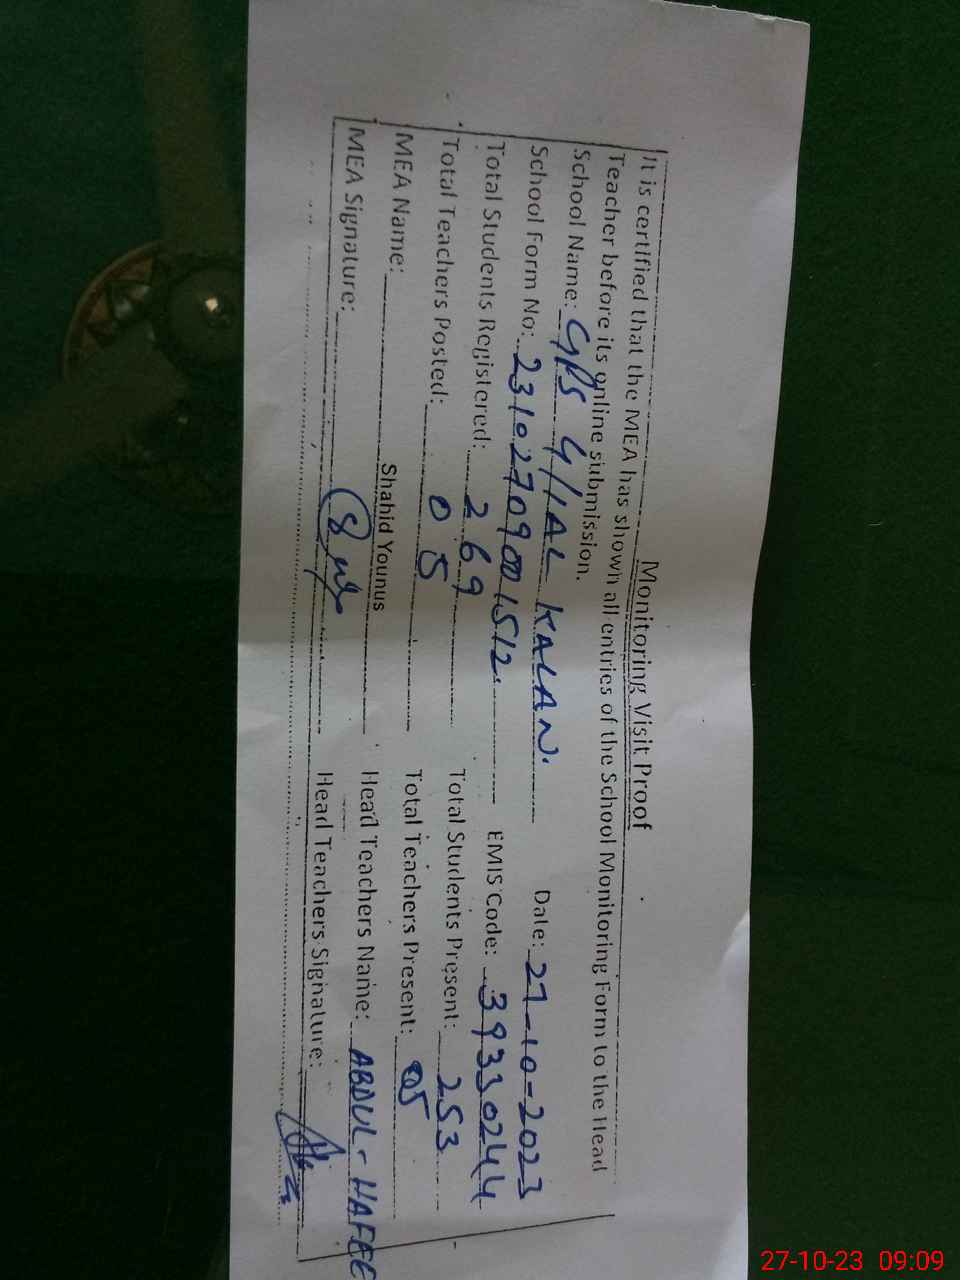 Monitoring Visit Proof
It is certified that the MEA has shown all entries of the School Monitoring Form to the Head
Teacher before its online submission.
School Name: GPS G/IAL KALAN. Date: 27-10-2023
School Form No: 231027090001512. EMIS Code: 39330244
Total Students Registered: 269 Total Students Present: 253
Total Teachers Posted: 05 Total Teachers Present: 05
MEA Name: Shahid Younus Head Teachers Name: ABDUL-HAFEE
MEA Signature: Head Teachers Signature:
27-10-23 09:09